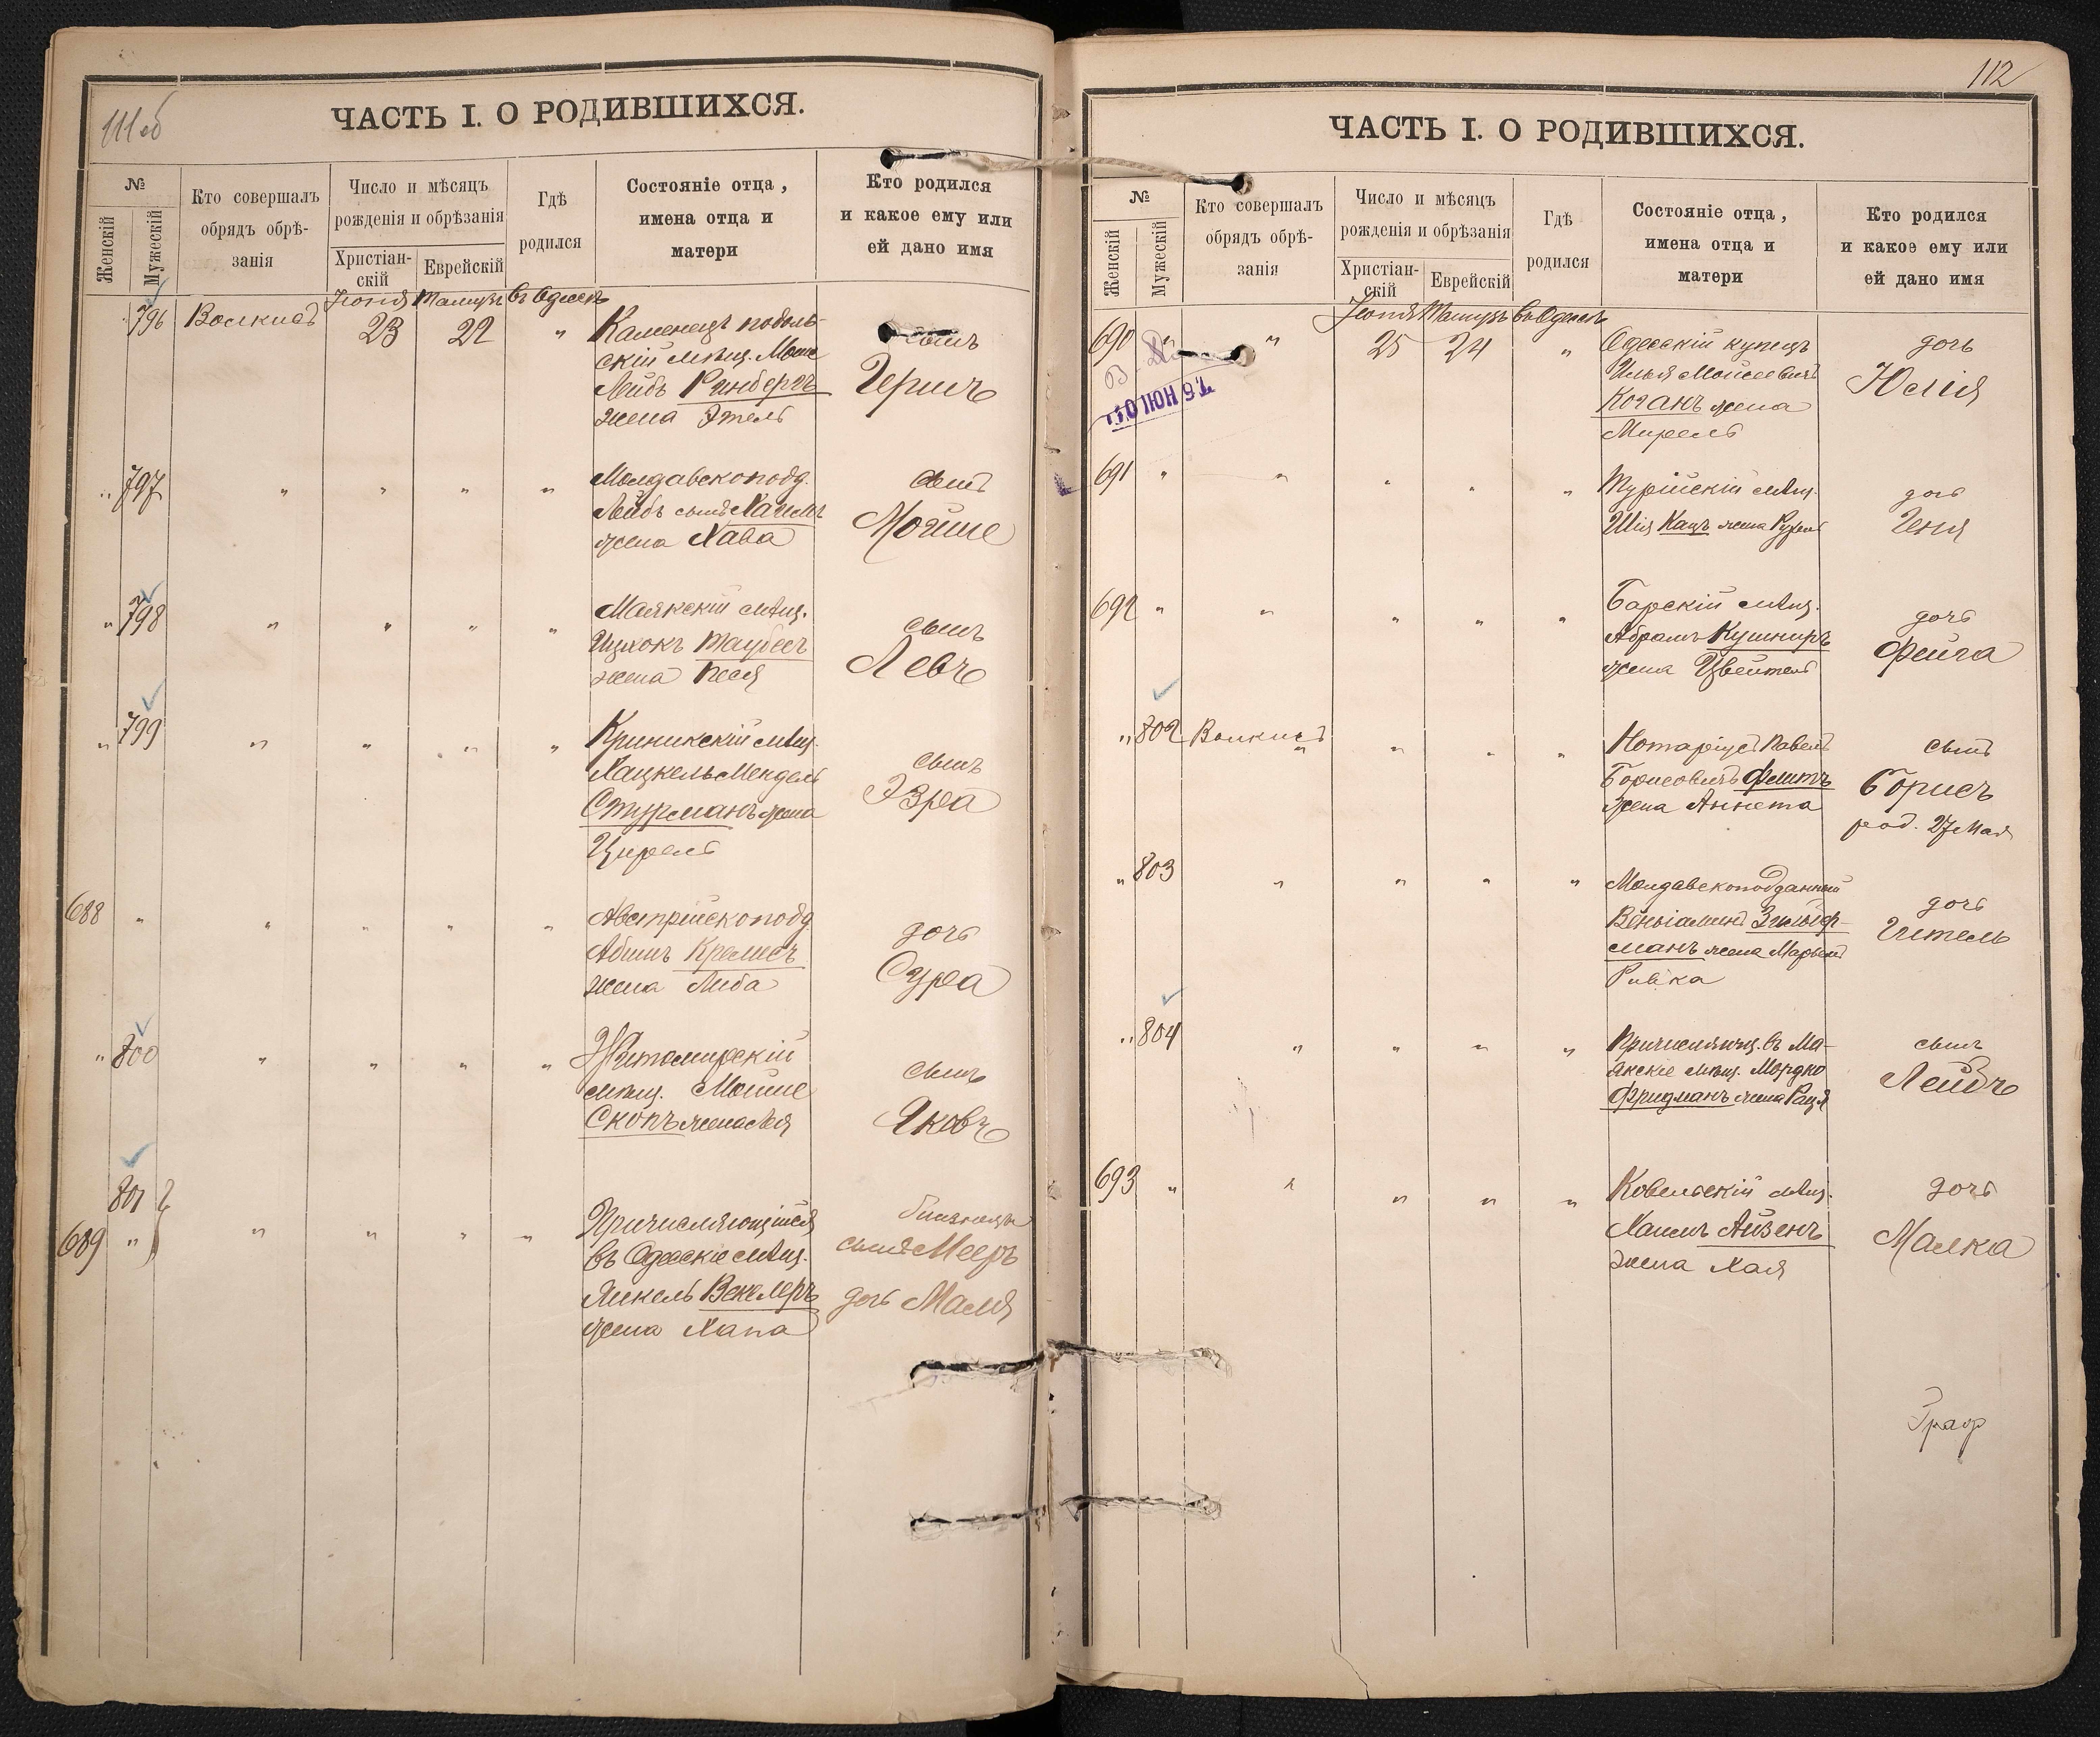 111об
ЧАСТЬ I. О РОДИВШИХСЯ.
№
Женскій
Мужескій
Кто совершалъ
обрядъ обрѣ-
занія
Число и мѣсяцъ
рожденія и обрѣзанія
Христіан-
скій
Еврейскій
Гдѣ
родился
Состояніе отца,
имена отца и
матери
Кто родился
и какое ему или
ей дано имя
Іюня Тамузъ Въ Одессѣ
796 23 22 "
Каменецъ подоль-
скій мѣщ. Моше
Лейбъ Гинбергъ
жена Этель
сынъ
Гершъ
" 797 " " " "
Молдавскопод.
Лейбъ сынъ Хаимъ
жена Хава
сынъ
Мойше
" 798 " " " "
Маякскій мѣщ.
Ицхокъ Таубесъ
жена Песя
сынъ
Левъ
" 799 " " " "
Криникскій мѣщ.
Хацкель Мендель
Стурманъ жена
Ципель
сынъ
Эзра
688 " " " " "
Австрійскопод.
Абишъ Кремсъ
жена Либа
дочь
Сура
" 800 " " " "
Житомирскій
мѣщ. Мойше
Скопъ жена Лея
сынъ
Яковъ
801
689 " " " " "
Причисляющійся
въ Одесскіе мѣщ.
Янкель Векслеръ
жена Хана
близнецы
сынъ Мееръ
дочь Маля
112
ЧАСТЬ I. О РОДИВШИХСЯ.
№
Женскій
Мужескій
Кто совершалъ
обрядъ обрѣ-
занія
Число и мѣсяцъ
рожденія и обрѣзанія
Христіан-
скій
Еврейскій
Гдѣ
родился
Состояніе отца,
имена отца и
матери
Кто родился
и какое ему или
ей дано имя
Іюня Тамузъ Въ Одессѣ
690 " " 25 24 "
Одесскій купецъ
Илья Моисеевичъ
Коганъ жена
Мирель
дочь
Юлія
691 " " " " "
Турійскій мѣщ.
Шія Кацъ жена
дочь
Геня
692 " " " " "
Барскій мѣщ.
Абрамъ Кушниръ
жена Цвейтель
дочь
Фейга
" 802 " " " "
Нотаріусъ Павелъ
Борисовичъ
жена Аннета
сынъ
Борисъ
род. 27 Мая
" 803 " " " "
Молдавскоподданный
Веніаминъ Зильбер-
манъ жена Марьемъ
Ривка
дочь
Гитель
" 804 " " " "
въ Ма-
якскіе мѣщ. Мордко
Фридманъ жена Рация
сынъ
Лейбъ
693 " " " " "
Ковельскій мѣщ.
Хаимъ Айзенъ
жена Хая
дочь
Малка